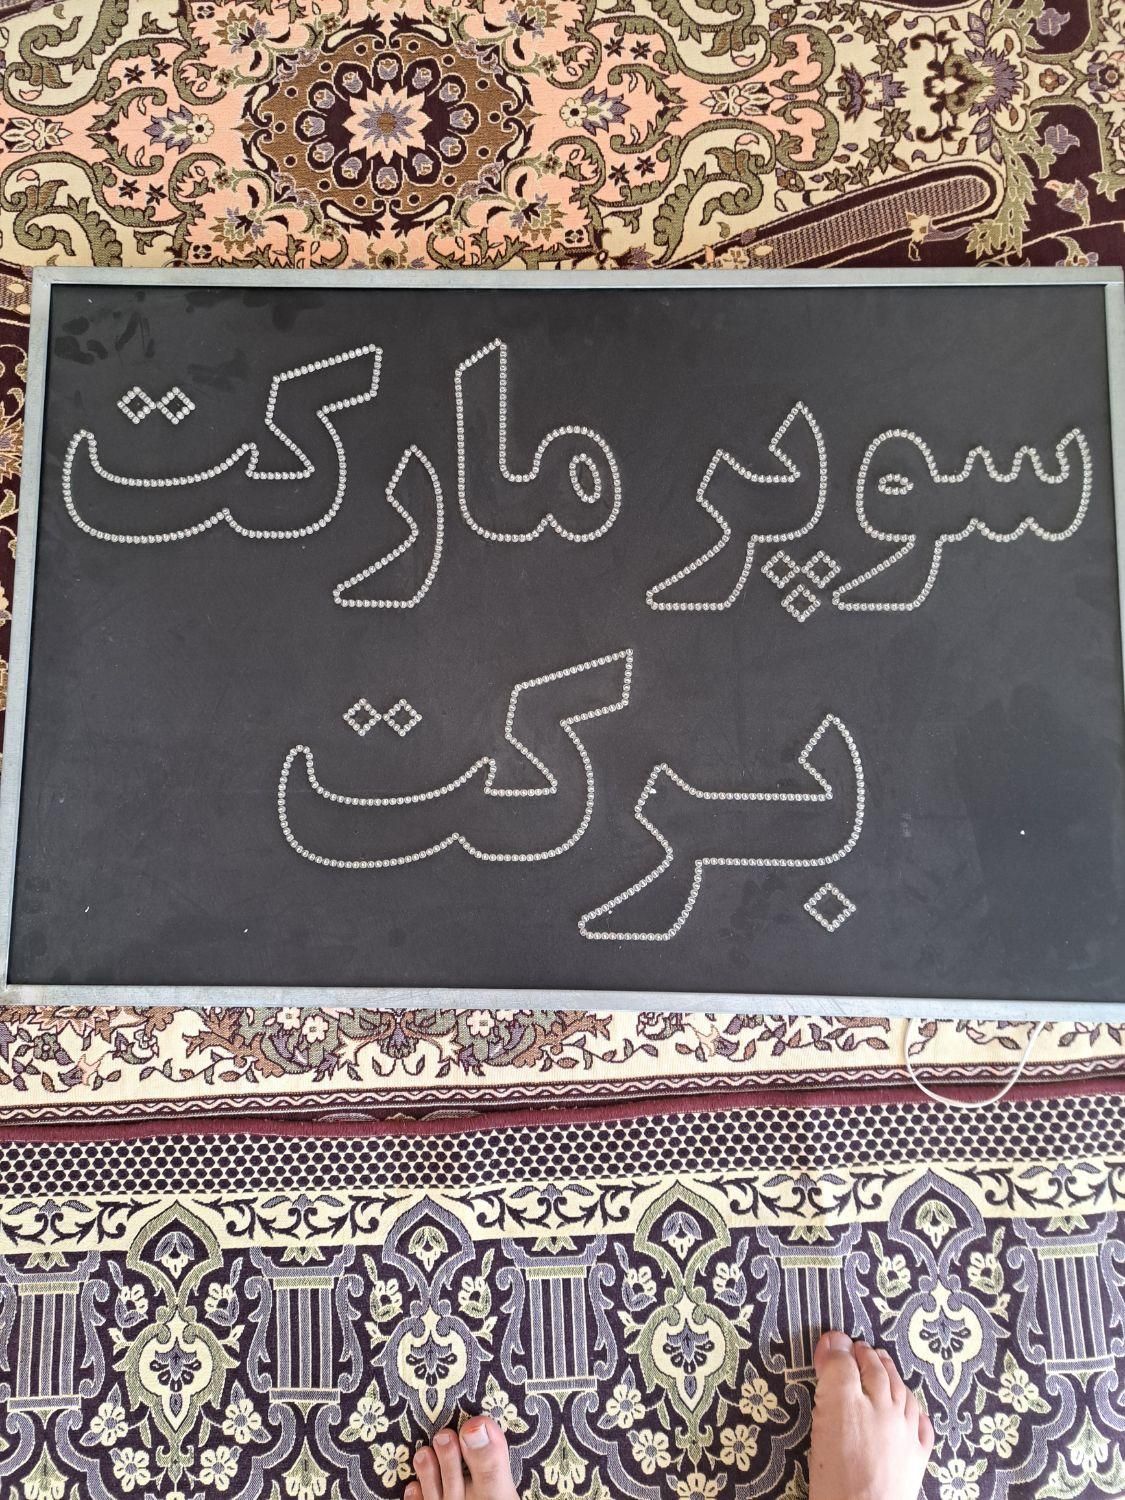 سوپر مارکت
برکت